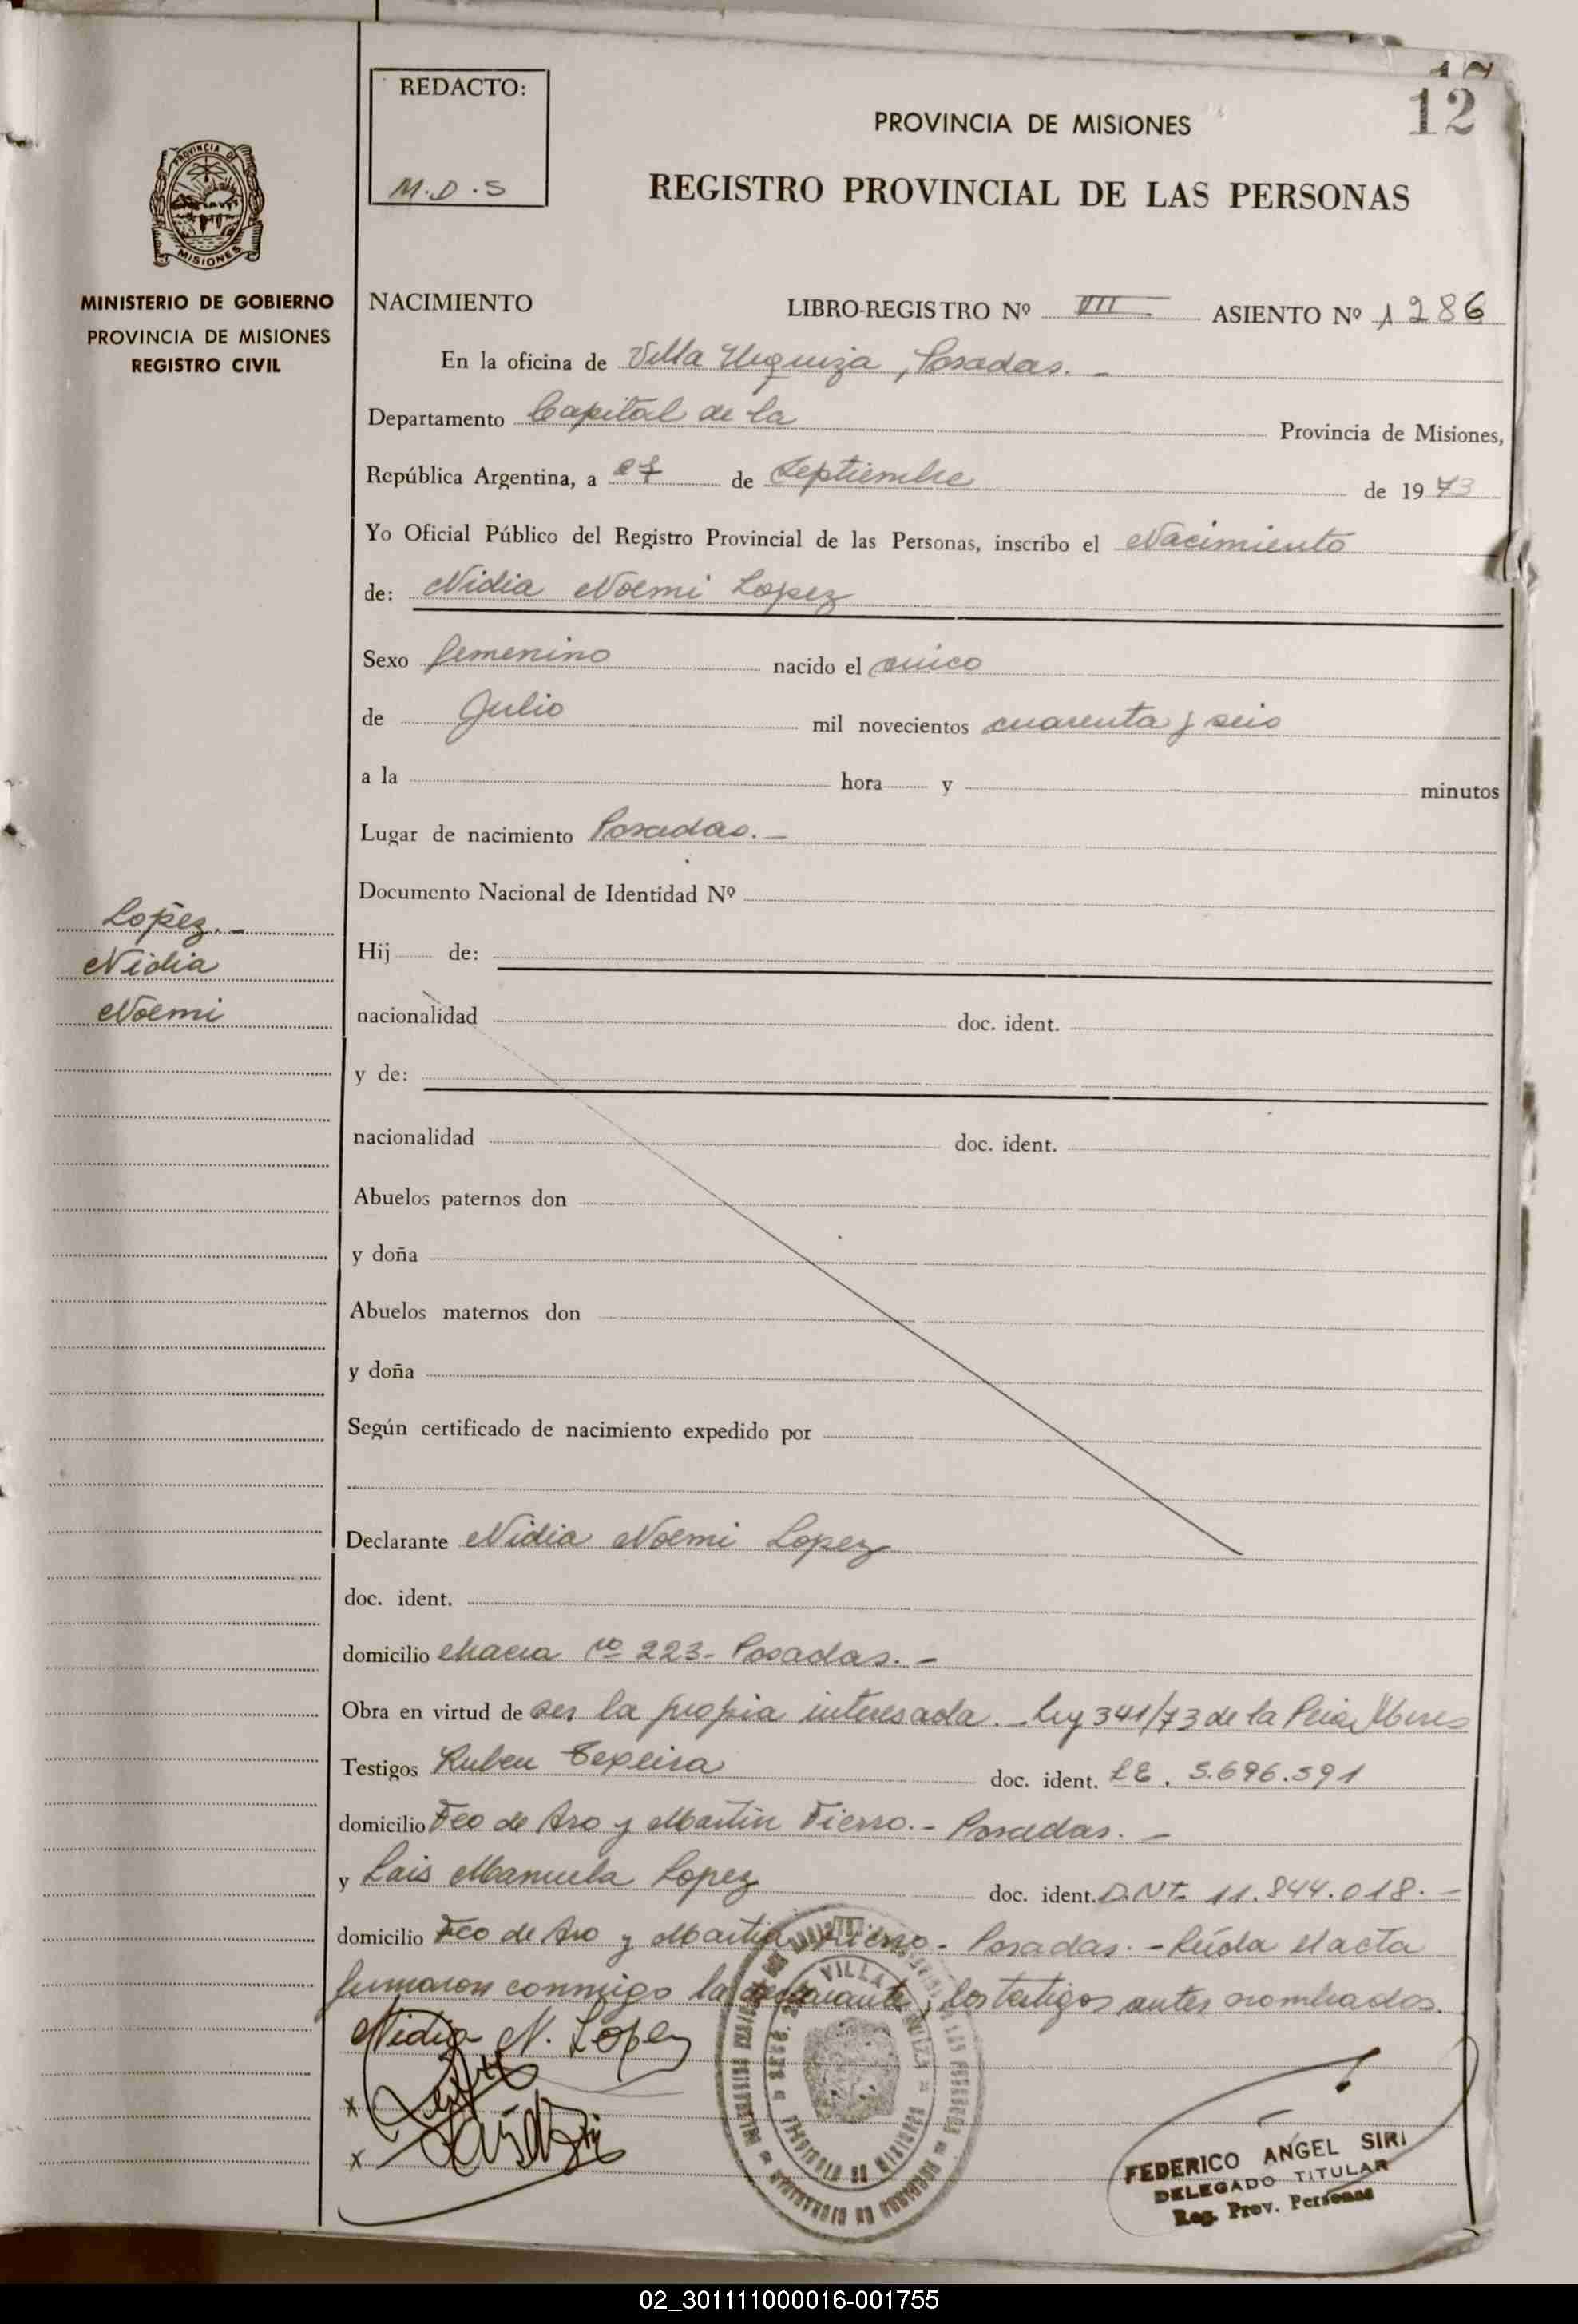 12
REDACTO:
M.D.S
PROVINCIA DE MISIONES
REGISTRO PROVINCIAL DE LAS PERSONAS
PROVINCIA DE
MISIONES
MINISTERIO DE GOBIERNO
PROVINCIA DE MISIONES
REGISTRO CIVIL
NACIMIENTO LIBRO-REGISTRO Nº VII ASIENTO Nº 1286
En la oficina de Villa Urquiza, Posadas.-
Departamento Capital de la Provincia de Misiones,
República Argentina, a de Septiembre de 1973
Yo Oficial Público del Registro Provincial de las Personas, inscribo el Nacimiento
de: Nidia Noemi Lopez
Sexo femenino nacido el
de Julio mil novecientos cuarenta y seis
a la hora y minutos
Lugar de nacimiento Posadas.-
Documento Nacional de Identidad Nº
Lopez.-
Nidia
Noemi
Hij de:
nacionalidad doc. ident.
y de:
nacionalidad doc. ident.
Abuelos paternos don
y doña
Abuelos maternos don
y doña
Según certificado de nacimiento expedido por
Declarante Nidia Noemi Lopez
doc. ident.
domicilio Nº 223- Posadas.-
Obra en virtud de ser la propia interesada. Ley 341/73 de la
Testigos Ruben Texeira doc. ident. LE. 5.696.591
domicilio Fco de Aro y Martin Fierro.- Posadas.-
y Lais Manuela Lopez doc. ident. D.N.I. 11.844.018.-
domicilio Fco de Aro y Martin Fierro- Posadas.- Leida el acta
firmaron conmigo la declarante y los testigos antes nombrados.
Nidia N. Lopez
x
x
VILLA URQUIZA
FEDERICO ANGEL SIRI
DELEGADO TITULAR
Reg. Prov. Personas
02_301111000016-001755